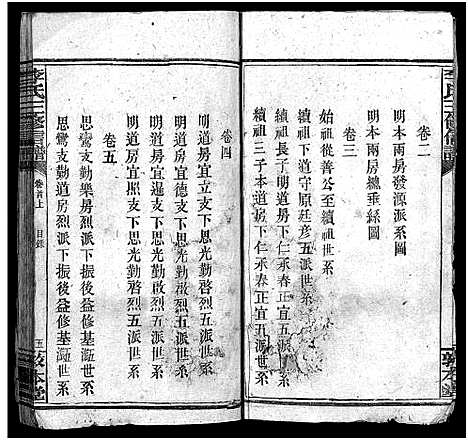 卷二
明本兩房發源派系圖
明本兩房總垂絲圖
卷三
始祖從善公至續祖世系
續祖支下道守原廷彥五派世系
續祖子長房明道下仁承春正宜五派世系
續祖三子本道房下仁承春正宜五派世系
卷四
明道房宜賜支下思光勤啓烈五派世系
明道房宜德支下思光勤啓烈五派世系
明道房宜暹支下思光勤啟烈五派世系
明道房宜照支下思光勤啓烈五派世系
卷五
思鸞支勤樂房烈派下振後益修基五世系
思鸞支勤道房烈派下振後益修基五世系
李氏三修信譜
卷首上
目錄
五
敦本堂